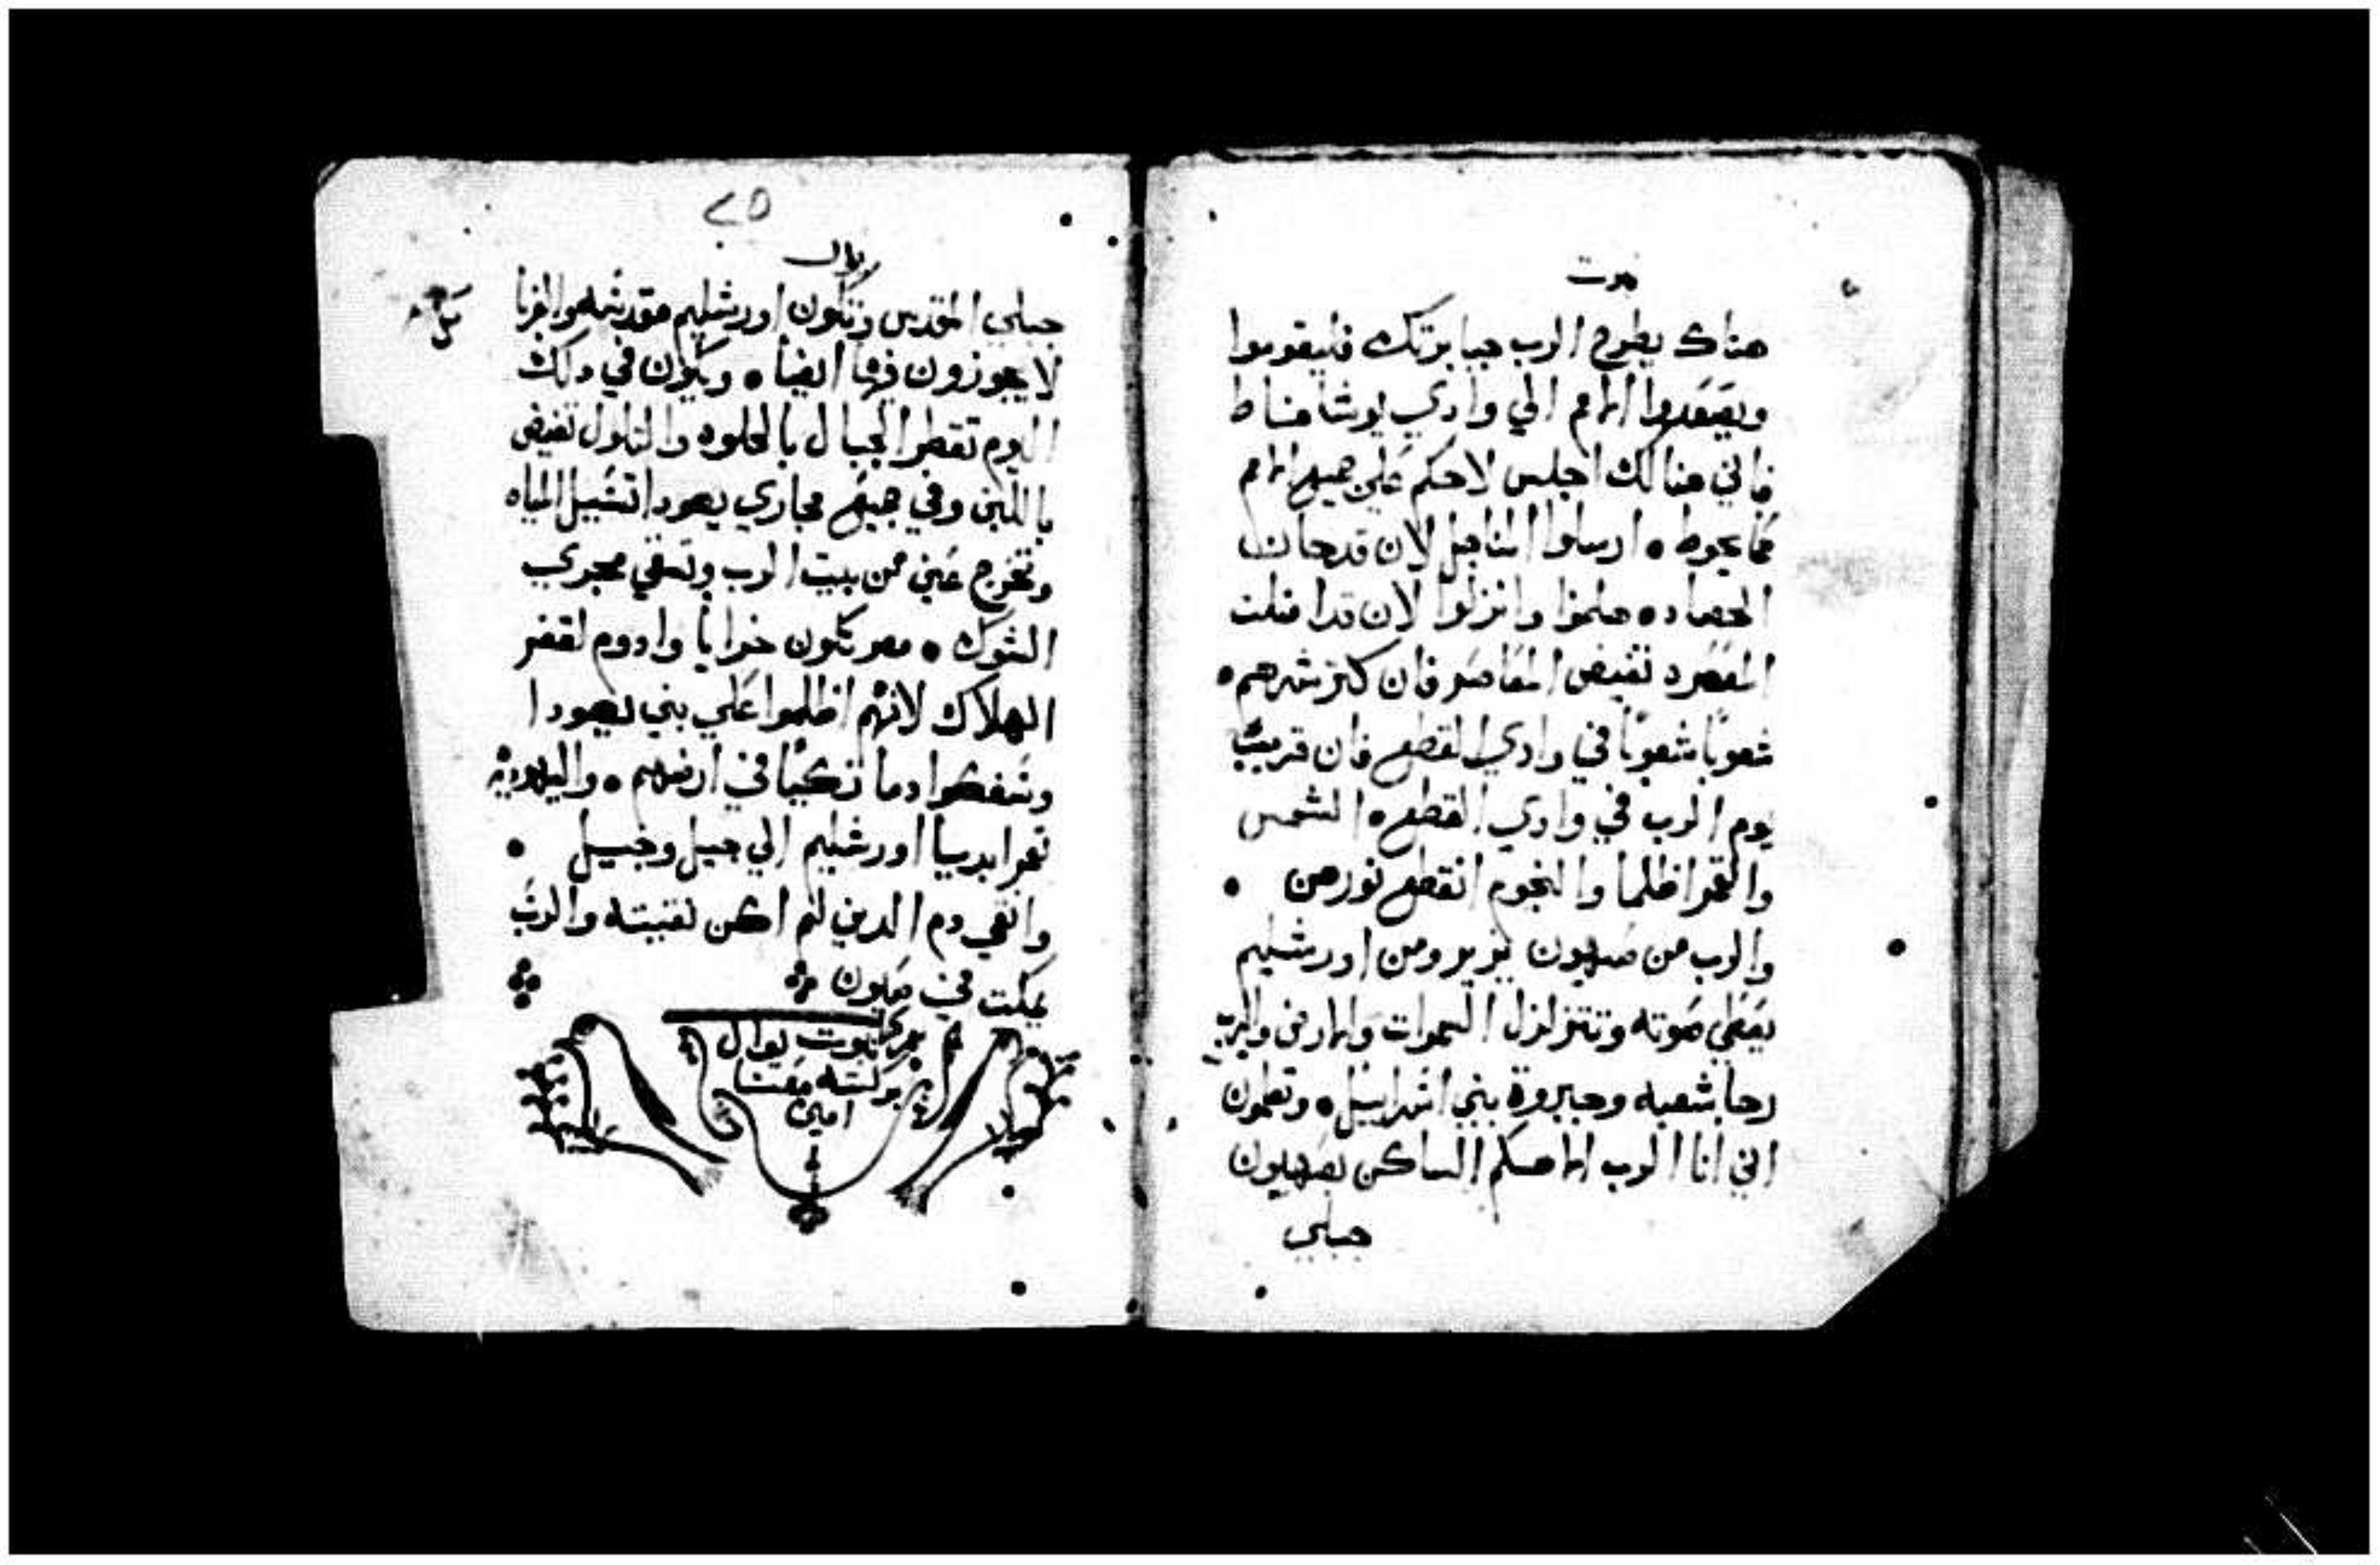 نبوت
هناك يطرح الرب جبابرتك فليقوموا
ويصعدوا الامم الي وادي يوشافاط
فاني هنالك اجلس لاحكم علي جميع الامم
مما يحوط • ارسلوا المناجل لان قد حان
الحصاد • هلموا وانزلوا لان قد امتلت
المعصره تفيض المعاصر فان كثر شرهم •
شعوبا شعوبا في وادي القطع فان قريب
يوم الرب في وادي القطع • الشمس
والقمر اظلما والنجوم انقطع نورهن •
والرب من صهيون يزير ومن اورشليم
يعطي صوته وتتزلزل السموات والارض والرب
رحا شعبه وجبروة بني اسراييل • وتعلمون
اني انا الرب الاهكم الساكن بصهيون
جبلي
٢٥
يوال
جبلي المقدس وتكون اورشليم مقدسه والغربا
لا يجوزون فيها ايضا • ويكون في دلك
اليوم تقطر الجبال بالحلاوه والتلول تفيض
باللبن وفي جميع مجاري يهودا تسيل المياه
وتخرج عين من بيت الرب وتسقي مجري
الشوك • مصر تكون خرابا وادوم لقفر
الهلاك لانهم اظلموا علي بني يهودا
وسفكوا دما زكيا في ارضهم • واليهوديه
تعمر ابديا اورشليم الي جيل وجيل •
وانقي دم الدين لم اكن نقيته والرب
يمكت في صهيون
نبوت يوال
بركته معنا
امين